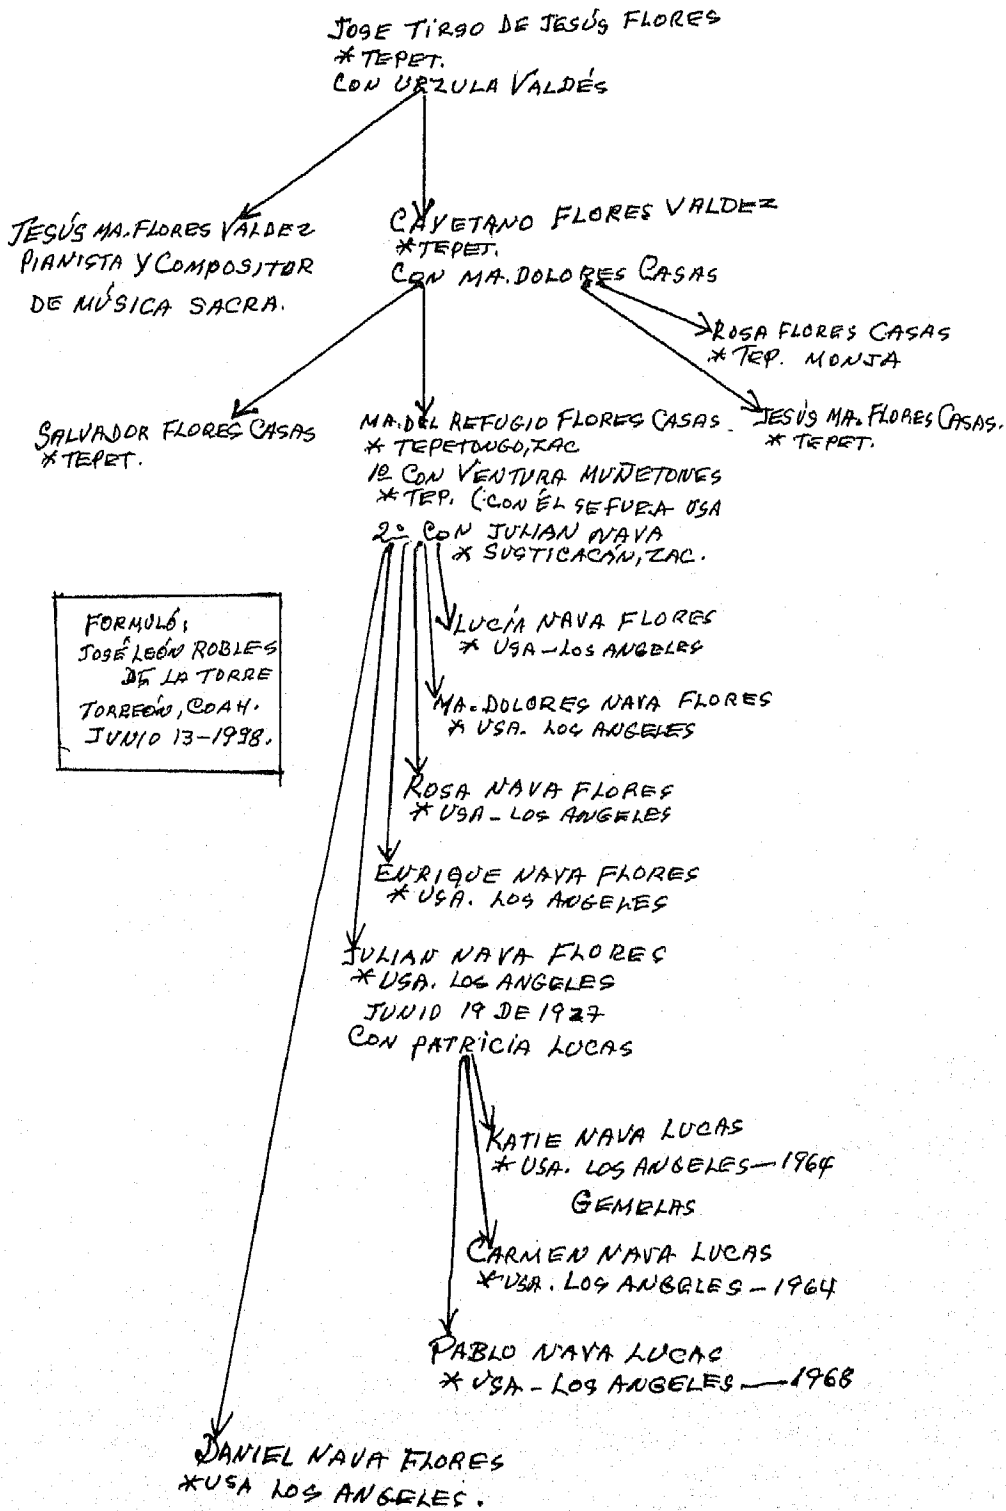 JOSE TIRSO DE JESÚS FLORES
* TEPET.
CON URZULA VALDÉS
JESÚS MA. FLORES VALDEZ
PIANISTA Y COMPOSITOR
DE MÚSICA SACRA.
CAYETANO FLORES VALDEZ
* TEPET.
CON MA. DOLORES CASAS
ROSA FLORES CASAS
* TEP. MONJA
SALVADOR FLORES CASAS
* TEPET.
MA. DEL REFUGIO FLORES CASAS
* TEPETONGO, ZAC
1º CON VENTURA MUÑETONES
* TEP. (CON ÉL SE FUE A USA
2º CON JULIAN NAVA
* SUSTICACÁN, ZAC.
JESÚS MA. FLORES CASAS.
* TEPET.
FORMULÓ:
JOSÉ LEÓN ROBLES
DE LA TORRE
TORREÓN, COAH.
JUNIO 13-1998.
LUCÍA NAVA FLORES
* USA - LOS ANGELES
MA. DOLORES NAVA FLORES
* USA. LOS ANGELES
ROSA NAVA FLORES
* USA - LOS ANGELES
ENRIQUE NAVA FLORES
* USA. LOS ANGELES
JULIAN NAVA FLORES
* USA. LOS ANGELES
JUNIO 19 DE 1927
CON PATRICIA LUCAS
KATIE NAVA LUCAS
* USA. LOS ANGELES - 1964
GEMELAS
CARMEN NAVA LUCAS
* USA. LOS ANGELES - 1964
PABLO NAVA LUCAS
* USA - LOS ANGELES - 1968
DANIEL NAVA FLORES
* USA LOS ANGELES.